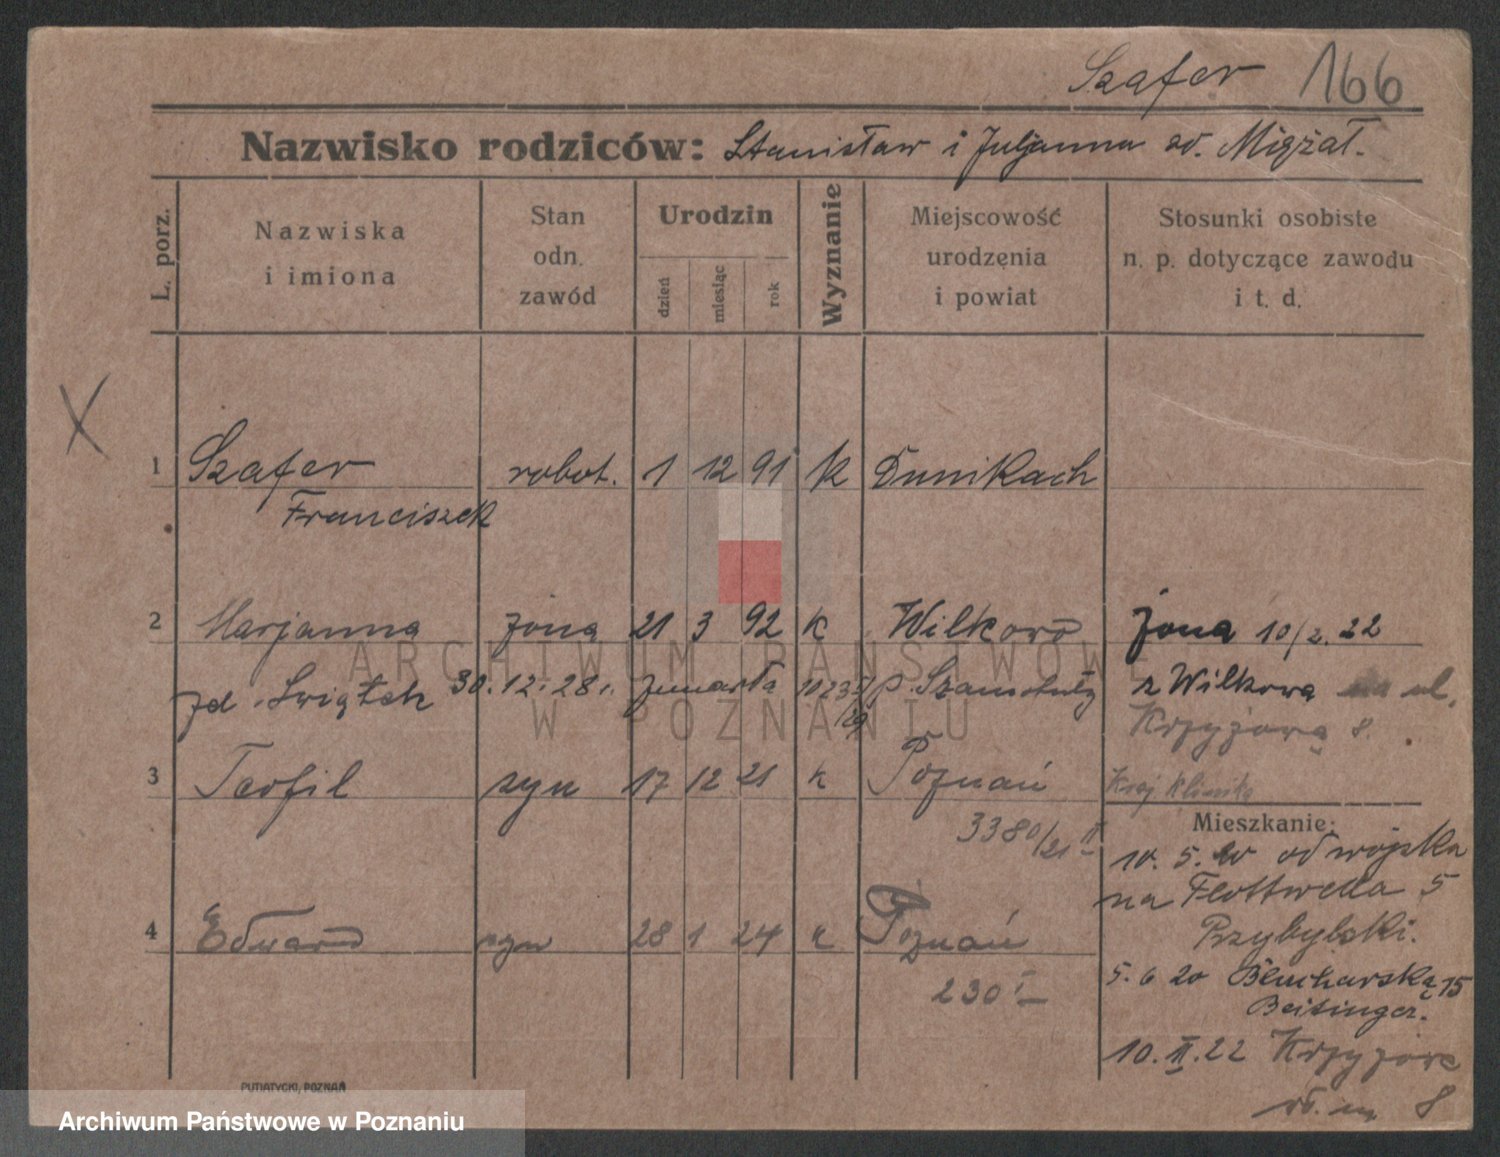 Szafer 166
Nazwisko rodziców: Stanisław i Juljanna
L. porz.
Nazwiska i imiona
Stan odn. zawód
Urodzin
dzień miesiąc rok
Wyznanie
Miejscowość urodzenia i powiat
Stosunki osobiste n. p. dotyczące zawodu i t. d.
X
1 Szafer robot. 1 12 91 k Dunikach
Franciszek
2 Marjanna żona 21 3 92 k Wilkowo żona 10/2.22
zd. Świątek 30.12.28 r. zmarła p. Szamotuły z Wilkowa ul.
Krzyżową 8.
3 Teofil syn 17 12 21 k Poznań
3380/21 II
Mieszkanie:
10. 5. 20 od wojska
na Flottwella 5
Przybylski.
4 Edward syn 28 1 24 k Poznań
230 I
5. 6 20 15
Beitinger.
10. II. 22 Krzyżowa
8
PUTIATYCKI, POZNAŃ
ARCHIWUM PAŃSTWOWE
W POZNANIU
Archiwum Państwowe w Poznaniu